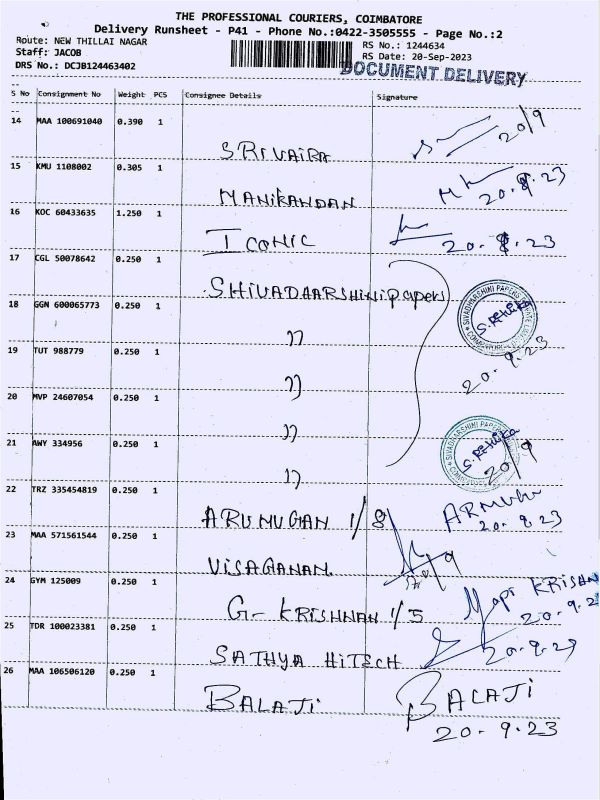 THE PROFESSIONAL COURIERS, COIMBATORE
Delivery Runsheet - P41 - Phone No.:0422-3505555 - Page No.:2
Route: NEW THILLAI NAGAR
Staff: JACOB
DRS No.: DCJB124463402
RS No.: 1244634
RS Date: 20-Sep-2023
DOCUMENT DELIVERY
S No Consignment No Weight PCS Consignee Details Signature
14 MAA 100691040 0.390 1 SRIVAIRA 20/9
15 KMU 1108002 0.305 1 MANIKANDAN 20.9.23
16 KOC 60433635 1.250 1 ICONIC 20.9.23
17 CGL 50078642 0.250 1 SHIVADAARSHINI papers
18 GGN 600065773 0.250 1 " S. Rethika
19 TUT 988779 0.250 1 " 20.9.23
20 MVP 24607054 0.250 1 "
21 AWY 334956 0.250 1 " S. Rethika 20/9
22 TRZ 335454819 0.250 1 ARUMUGAN 1/8 20.9.23
23 MAA 571561544 0.250 1 VISAGANAN
24 GYM 125009 0.250 1 G- KRISHNAN 1/5 Gopi KRISHN 20.9.2
25 TDR 100023381 0.250 1 SATHYA HITECH 20.9.23
26 MAA 106506120 0.250 1 BALAJI BALAJI
20.9.23